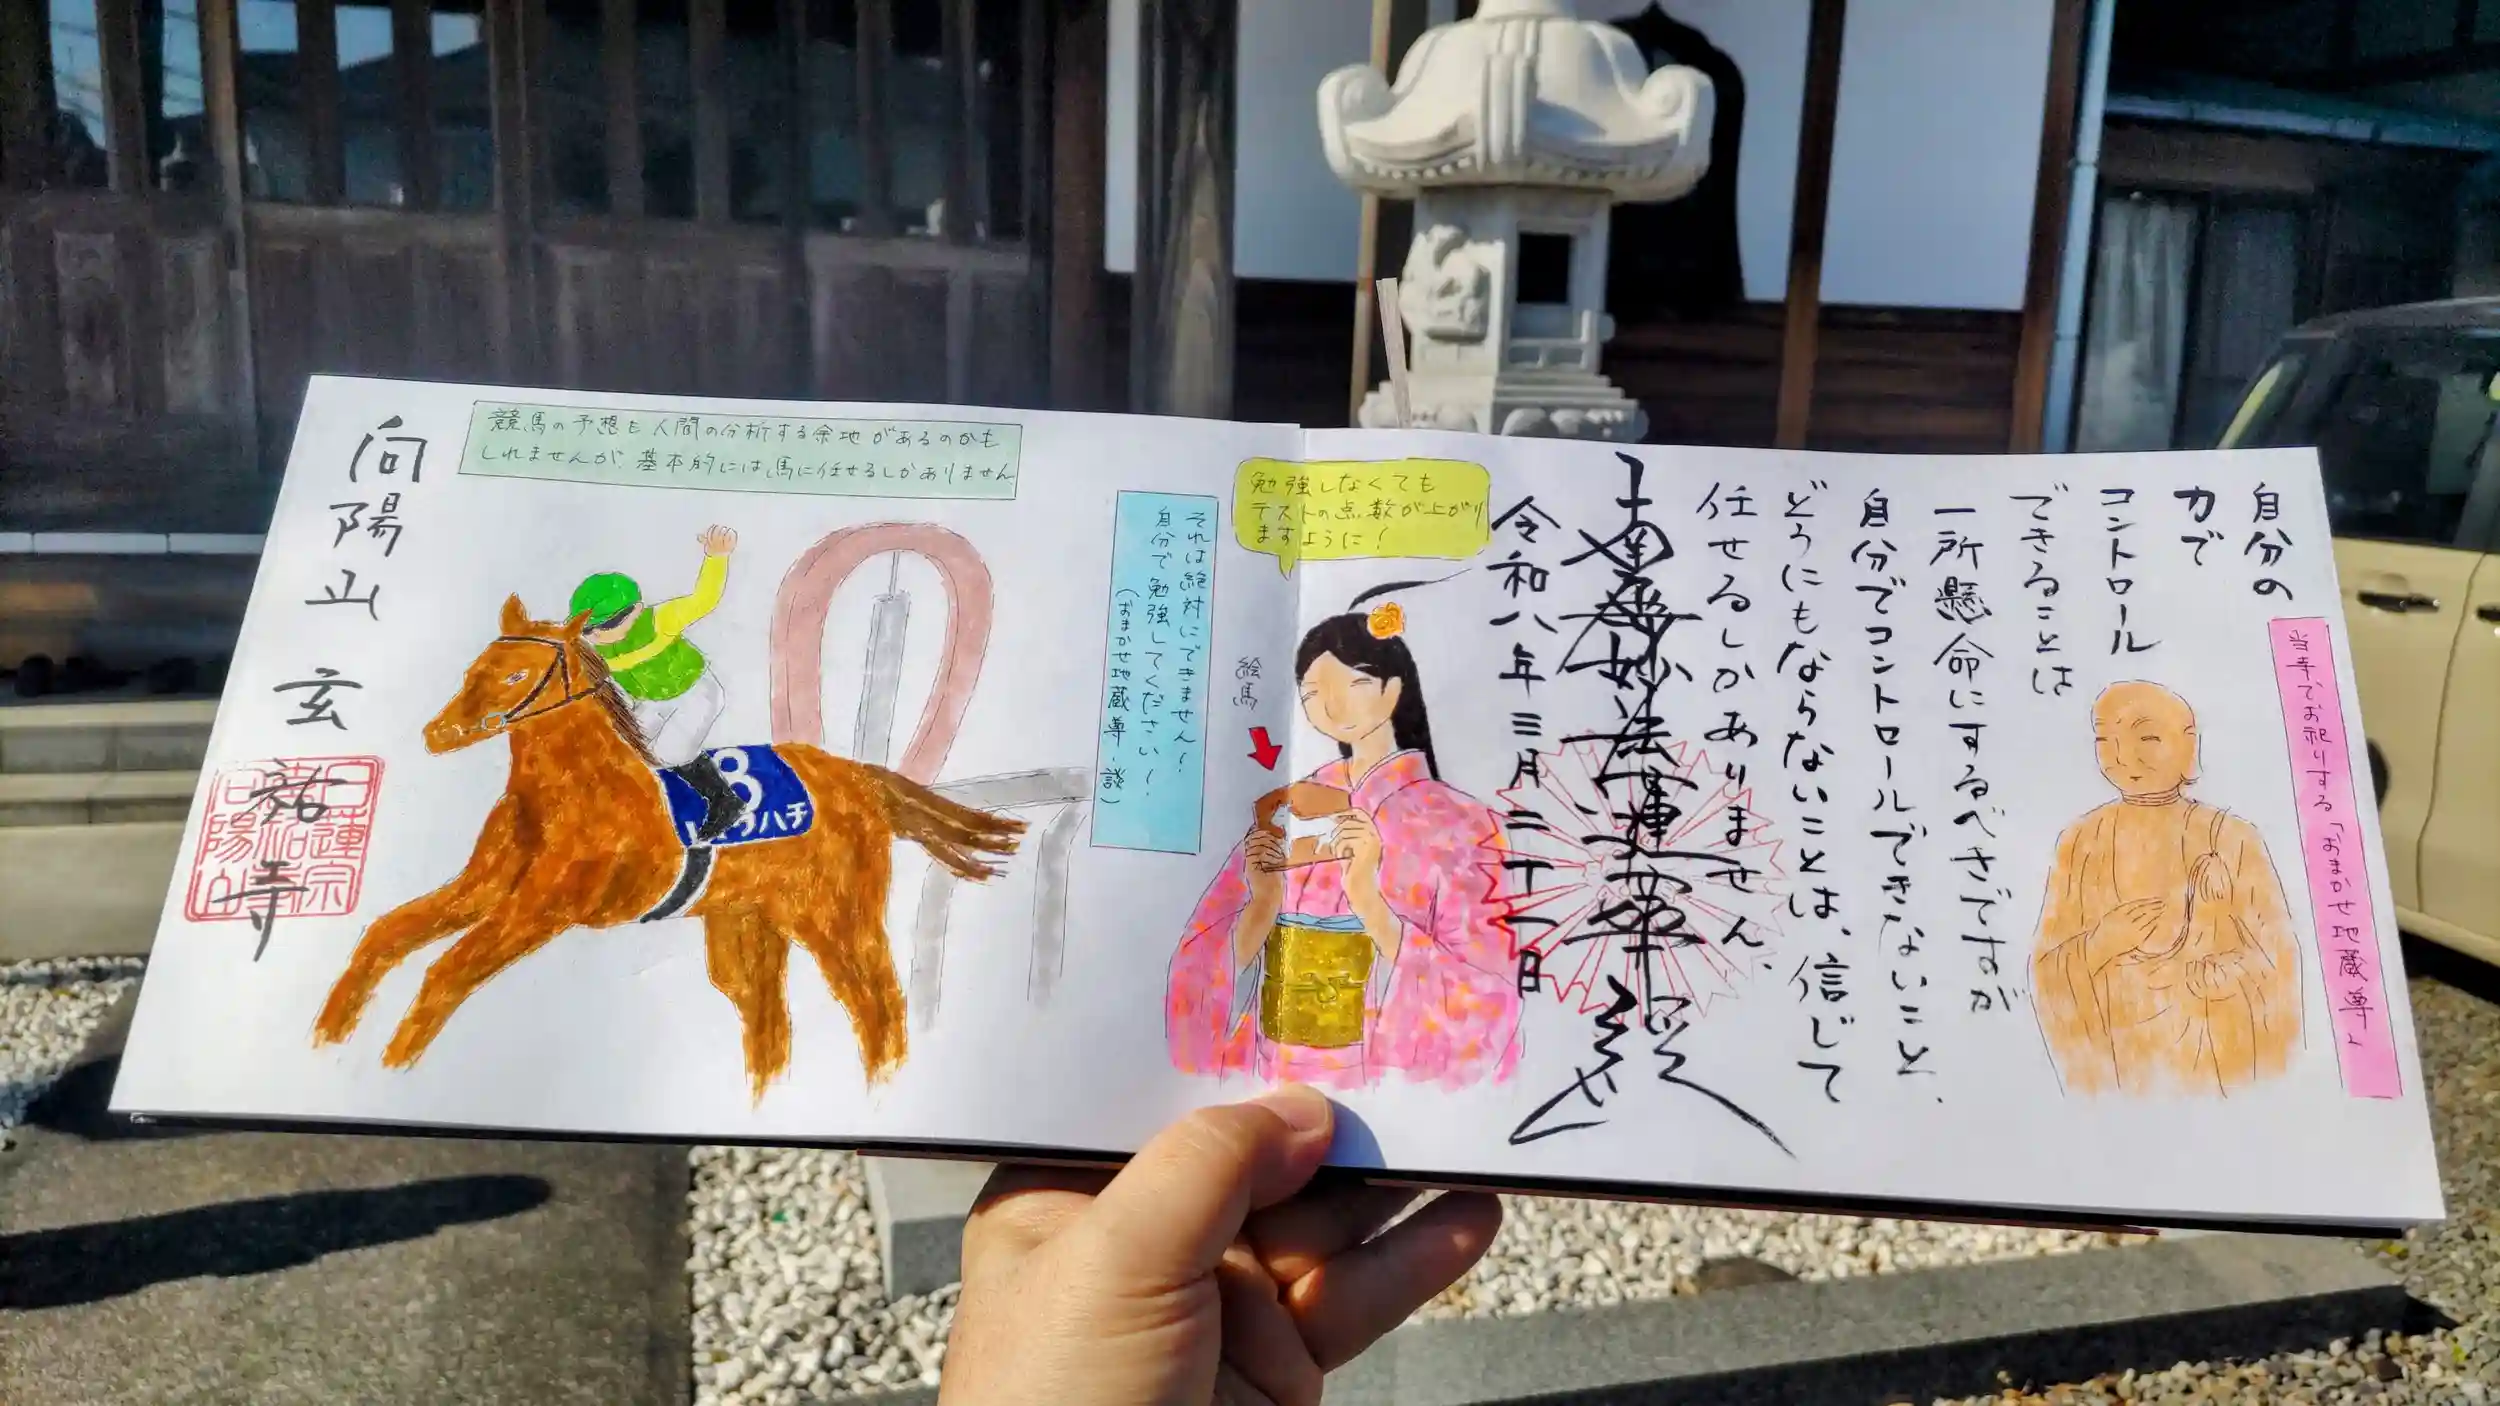 自分の
力で
コントロール
できることは
一所懸命にするべきですが
自分でコントロールできないこと、
どうにもならないことは、信じて
任せるしかありません、
当寺でお祀りする「おまかせ地蔵尊」
南無妙法蓮華経
令和八年三月二十一日
勉強しなくても
テストの点数が上がり
ますように!
絵馬
それは絶対にできません!
自分で勉強してください!
(おまかせ地蔵尊・談)
競馬の予想も人間の分析する余地があるのかも
しれませんが、基本的には馬に任せるしかありません
8
ハチ
向陽山 玄祐寺
日蓮宗
玄祐寺
向陽山